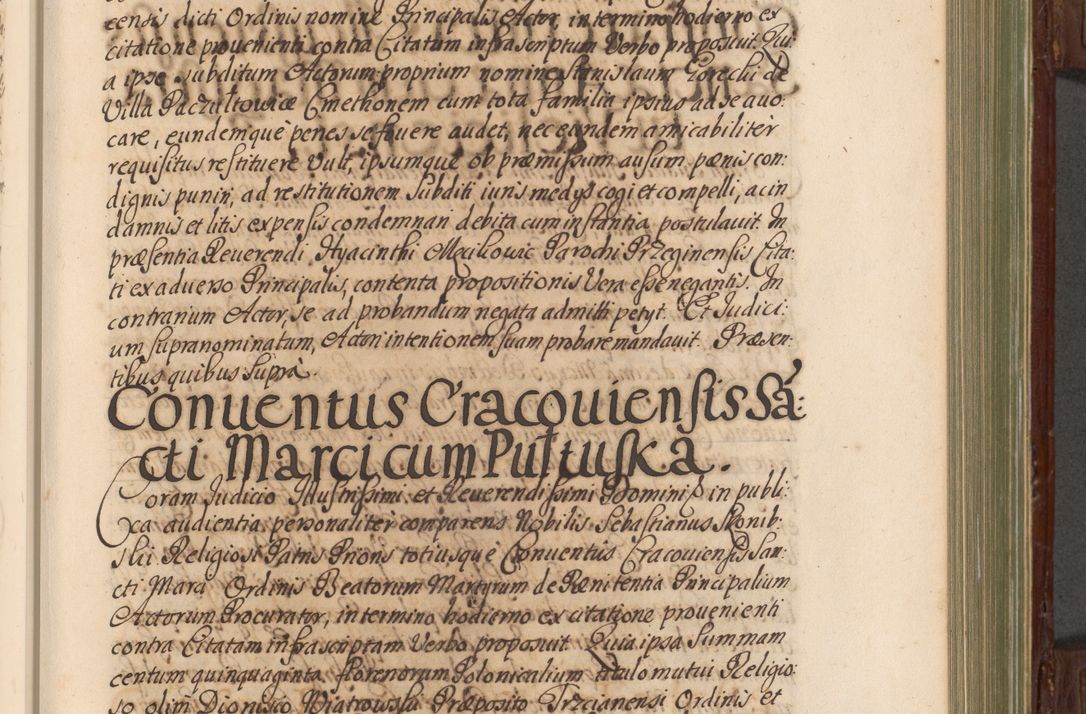 censis dicti Ordinis nomine Principalis Actor, in termino hodierno ex
citatione prouenienti contra Citatum infrascriptum Verbo proposuit. Qui
a ipse subditum Actorum proprium nomine Stanislaum Gorecki de
Villa Paczułtowice Cmethonem cum tota familia ipsius ad se auo:
care, eundemque penes se fouere audet, nec eundem amicabiliter
requisitus restituere Vult, ipsumque ob præmissum ausum pænis con:
dignis puniri, ad restitutionem Subditi iuris medys cogi et compelli, ac in
damnis et litis expensis condemnari debita cum instantia postulauit. In
præsentia Reuerendi Hyacinthi Parochi Przeginensis Cita:
ti ex aduerso Principalis, contenta propositionis Vera esse negantis. In
contrarium Actor, se ad probandum negata admitti petyt. Et Judici:
um supranominatum, Actori intentionem suam probare mandauit. Præsen:
tibus quibus supra.
Conuentus Cracouiensis Sá:
cti Marci cum Pułtuska.
Coram Judicio Illustrissimi et Reuerendissimi Domini in publi:
ca audientia personaliter comparens Nobilis Sebastianus Skonib:
ski Religiosi Patris Prioris totiusque Conuentus Cracouiensis San:
cti Marci Ordinis Beatorum Martyrum de Pænitentia Principalium
Actorum Procurator, in termino hodierno ex citatione prouenienti
contra Citatam infrascriptam Verbo proposuit. Quia ipsa Summam
centum quinquaginta florenorum Polonicalium titulo mutui Religio:
so olim Dionisio Wiatrowski Præposito Trzcianensi Ordinis et